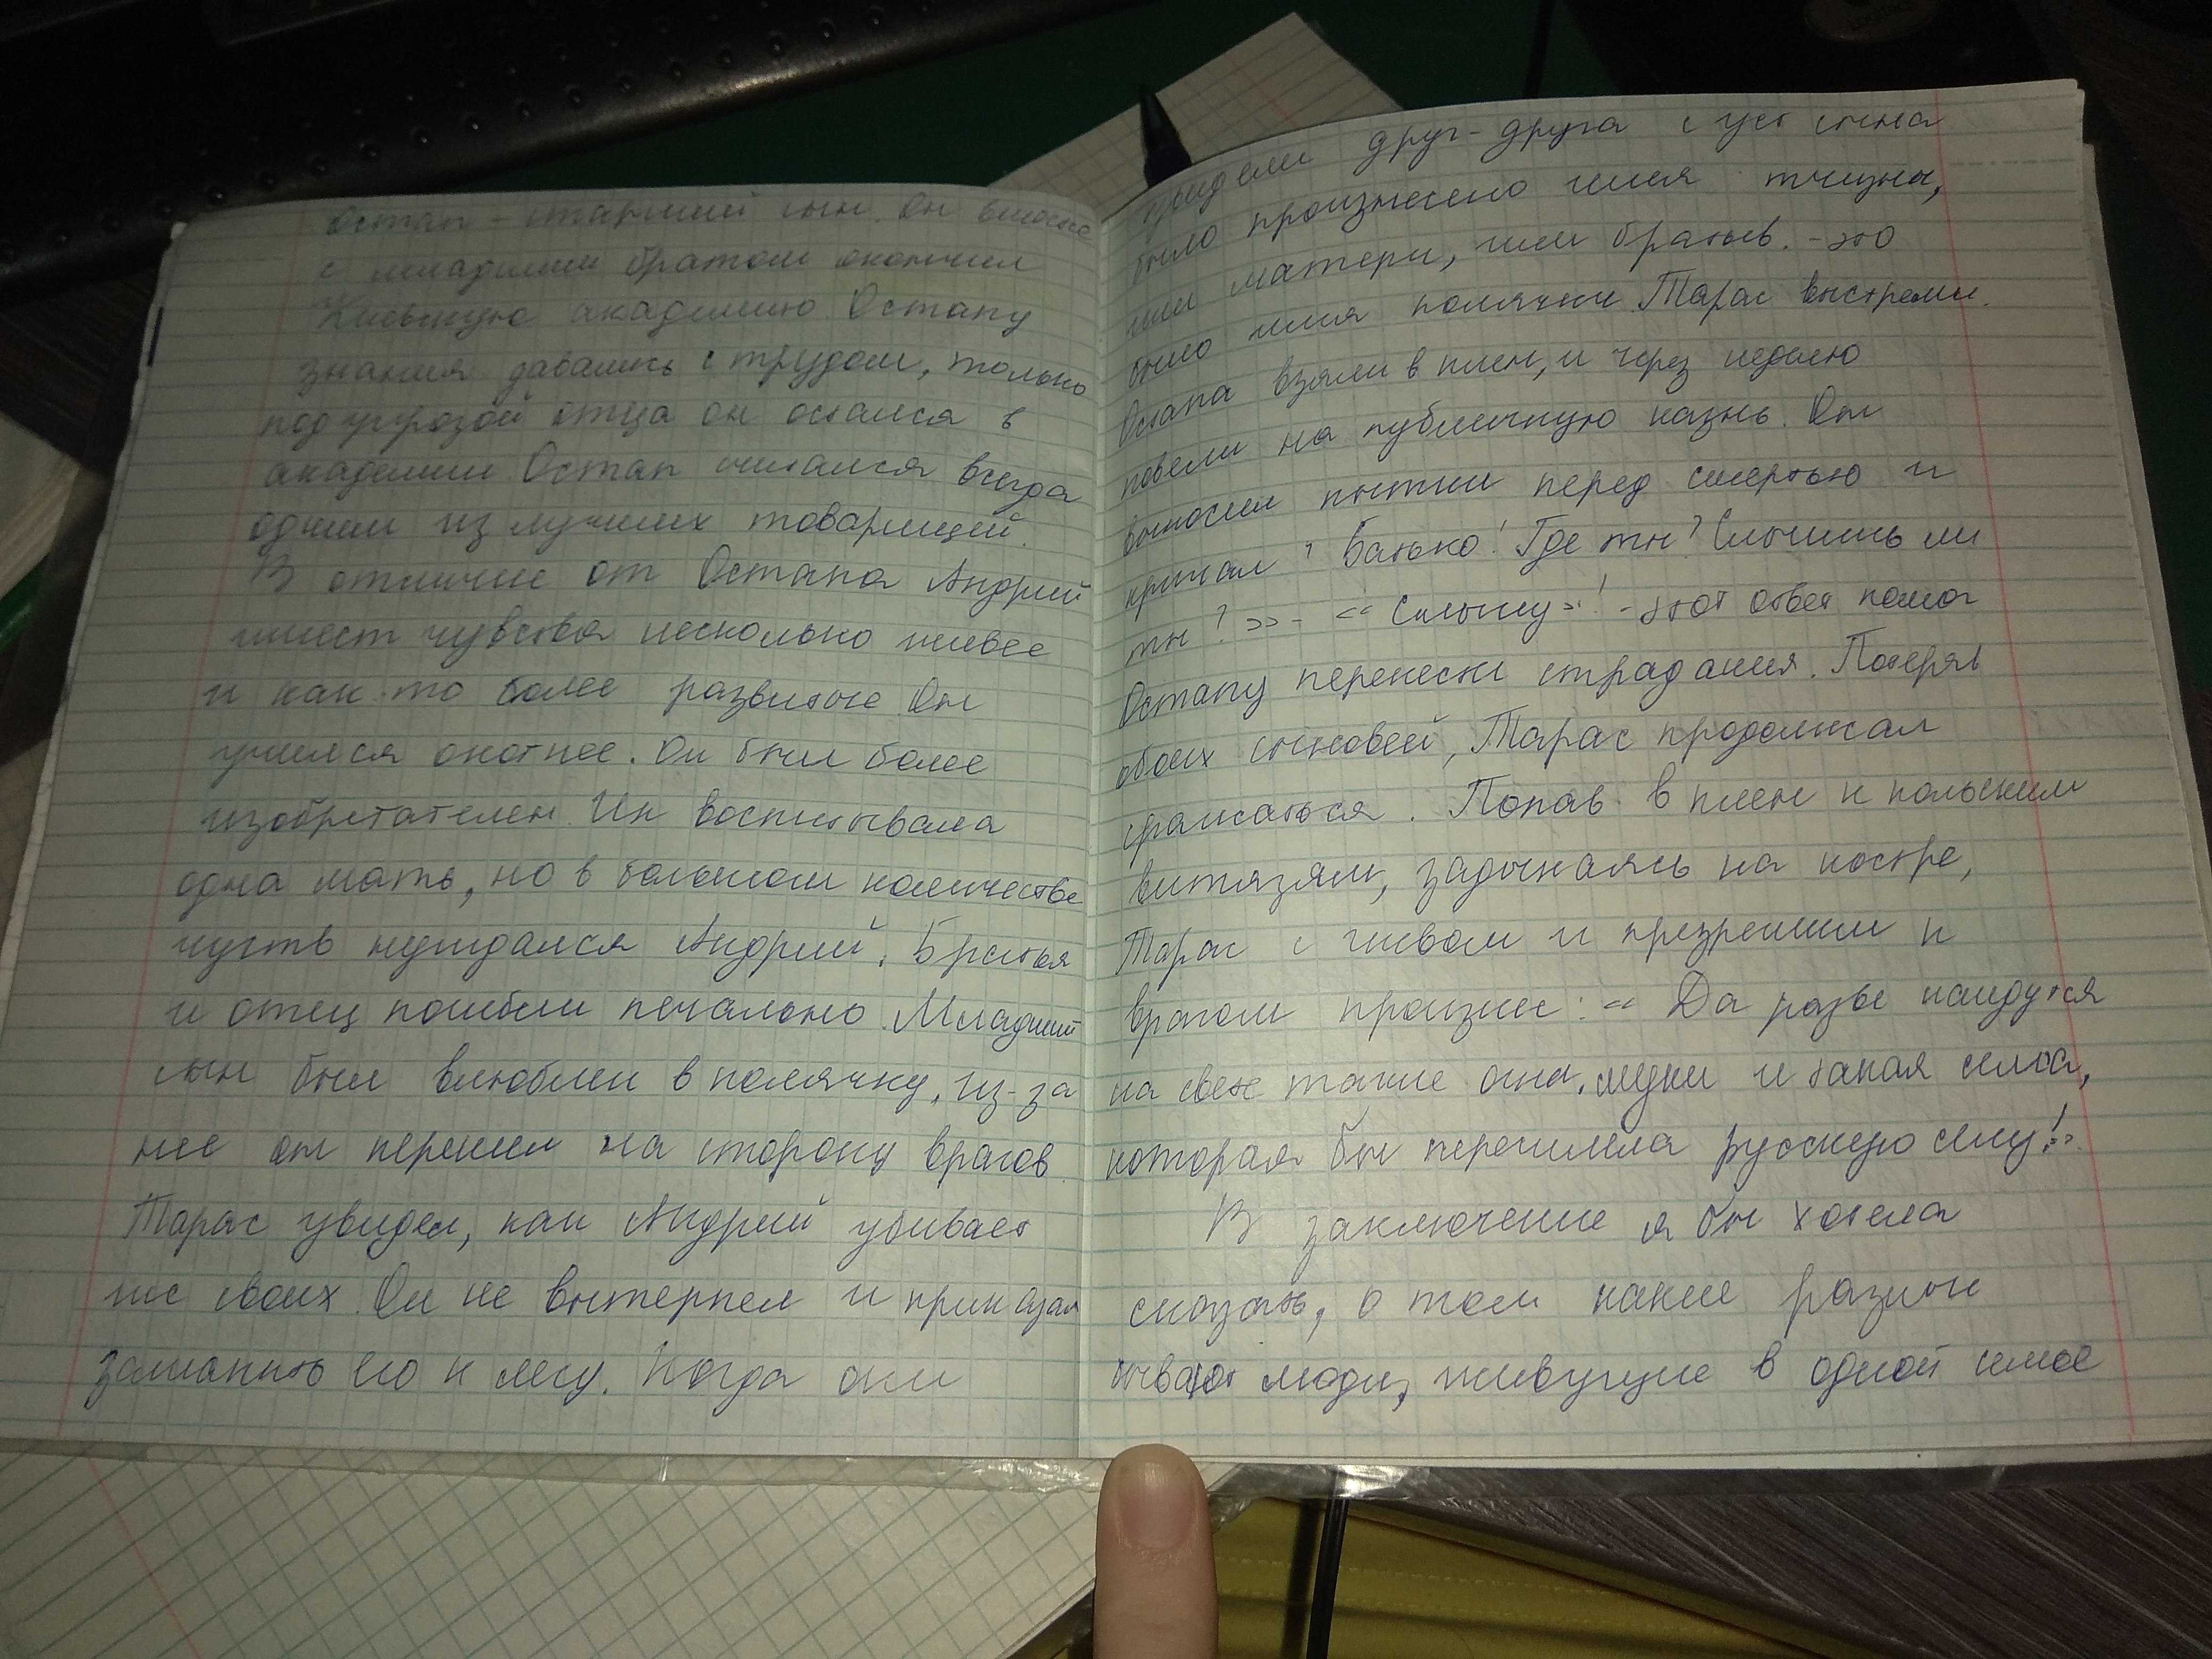 Остап - старший сын. Он вместе
с младшим братом окончил
Киевскую академию. Остапу
знания давались с трудом, только
под угрозой отца он остался в
академии. Остап считался всегда
одним из лучших товарищей.
В отличие от Остапа Андрий
имеет чувства несколько живее
и как-то более развитые. Он
учился охотнее. Он был более
изобретателен. Их воспитывала
одна мать, но в большом количестве
чувств нуждался Андрий. Братья
и отец погибли печально. Младший
сын был влюблен в полячку, из-за
нее он перешел на сторону врагов.
Тарас увидел, как Андрий убивает
своих. Он не вытерпел и приказал
заманить его к лесу. Когда они
увидели друг-друга с уст сына
было произнесено имя тчизны,
или матери, или братьев. - это
было имя полячки. Тарас выстрелил.
Остапа взяли в плен, и через неделю
повели на публичную казнь. Он
выносил пытки перед смертью и
кричал " Батько! Где ты? Слышишь ли
ты? >> - << Слышу >>! - этот ответ помог
Остапу перенести страдания. Потеряв
обоих сыновей, Тарас продолжал
сражаться. Попав в плен к польским
витязям, задыхаясь на костре,
Тарас с гневом и презрением к
врагам произнес: << Да разве найдутся
на свете такие огни, муки и такая сила,
которая бы пересилила русскую силу! >>.
В заключение я бы хотела
сказать, о том какие разные
бывают люди, живущие в одной семье